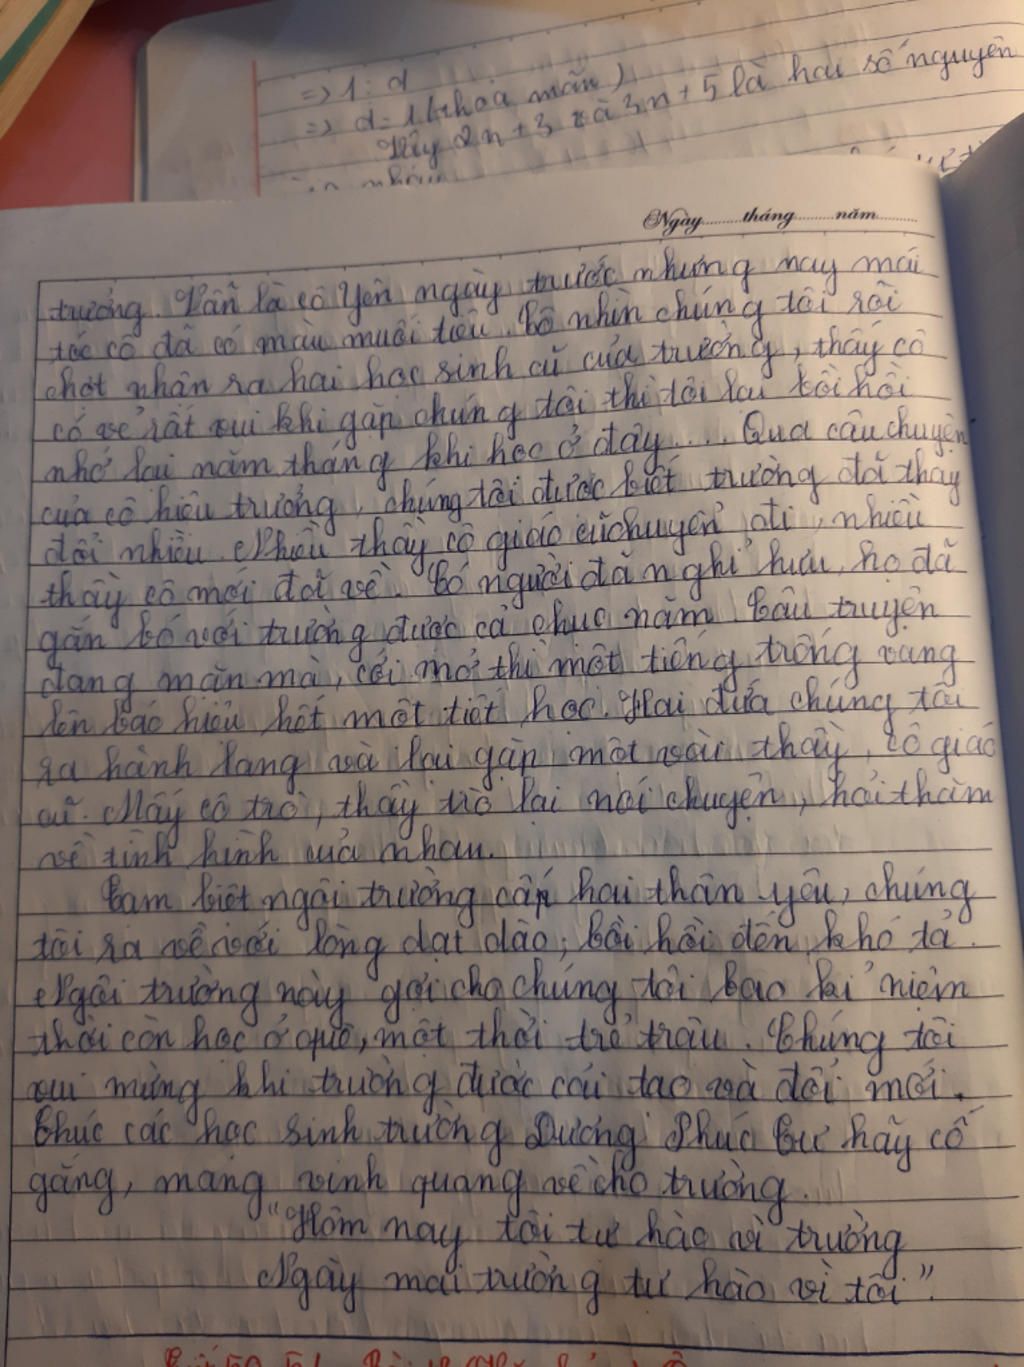 => 1 : d
=> d = 1 (thoả mãn)
Vậy 2n + 3 và 3n + 5 là hai số nguyên
Ngày.........tháng.........năm.........
trưởng. Vẫn là cô Yên ngày trước nhưng nay mái
tóc cô đã có màu muối tiêu. Cô nhìn chúng tôi rồi
chợt nhận ra hai học sinh cũ của trường, thấy cô
có vẻ rất vui khi gặp chúng tôi thì tôi lại bồi hồi
nhớ lại năm tháng khi học ở đây.... Qua câu chuyện
của cô hiệu trưởng, chúng tôi được biết trường đã thay
đổi nhiều. Nhiều thầy cô giáo cũ chuyển đi, nhiều
thầy cô mới đã về. Có người đã nghỉ hưu, họ đã
gắn bó với trường được cả chục năm. Câu truyện
đang mặn mà, cởi mở thì một tiếng trống vang
lên báo hiệu hết một tiết học. Hai đứa chúng tôi
ra hành lang và lại gặp một vài thầy, cô giáo
cũ. Mấy cô trò, thầy trò lại nói chuyện, hỏi thăm
về tình hình của nhau.
Tạm biệt ngôi trường cấp hai thân yêu, chúng
tôi ra về với lòng dạt dào, bồi hồi đến khó tả.
Ngôi trường này gợi cho chúng tôi bao kỉ niệm
thời còn học ở quê, một thời trẻ trâu. Chúng tôi
vui mừng khi trường được cải tạo và đổi mới.
Chúc các học sinh trường Dương Phúc Tư hãy cố
gắng, mang vinh quang về cho trường.
"Hôm nay tôi tự hào vì trường
Ngày mai trường tự hào vì tôi".